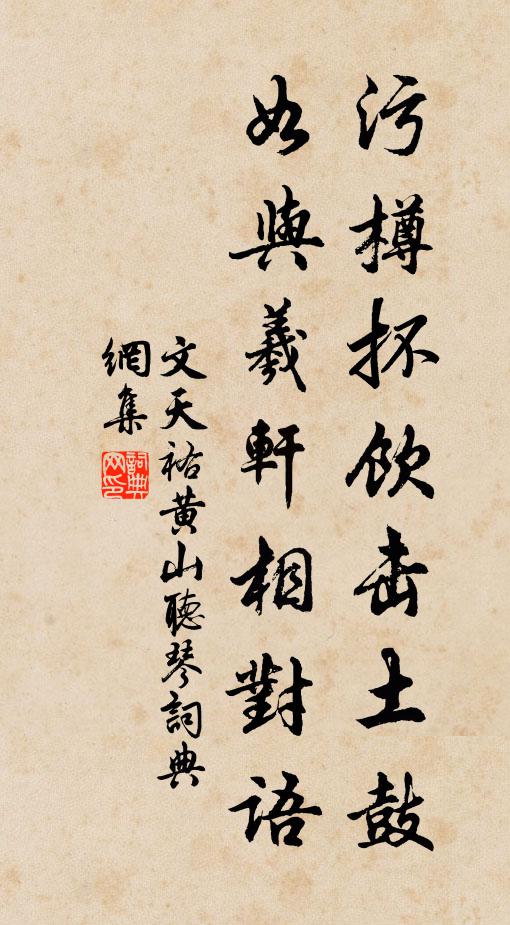 污樽抔飲击土鼓
如與羲軒相對语
文天祐黄山聽琴詞典
網集
詞典網印